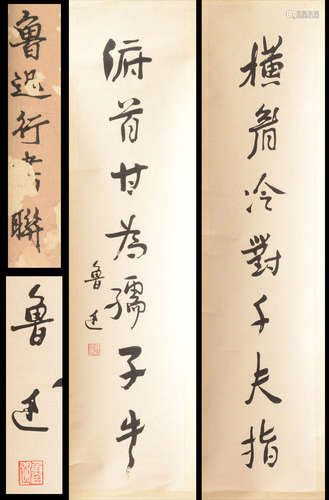 橫眉冷對千夫指
俯首甘為孺子牛
魯迅
魯迅行書聯
魯迅